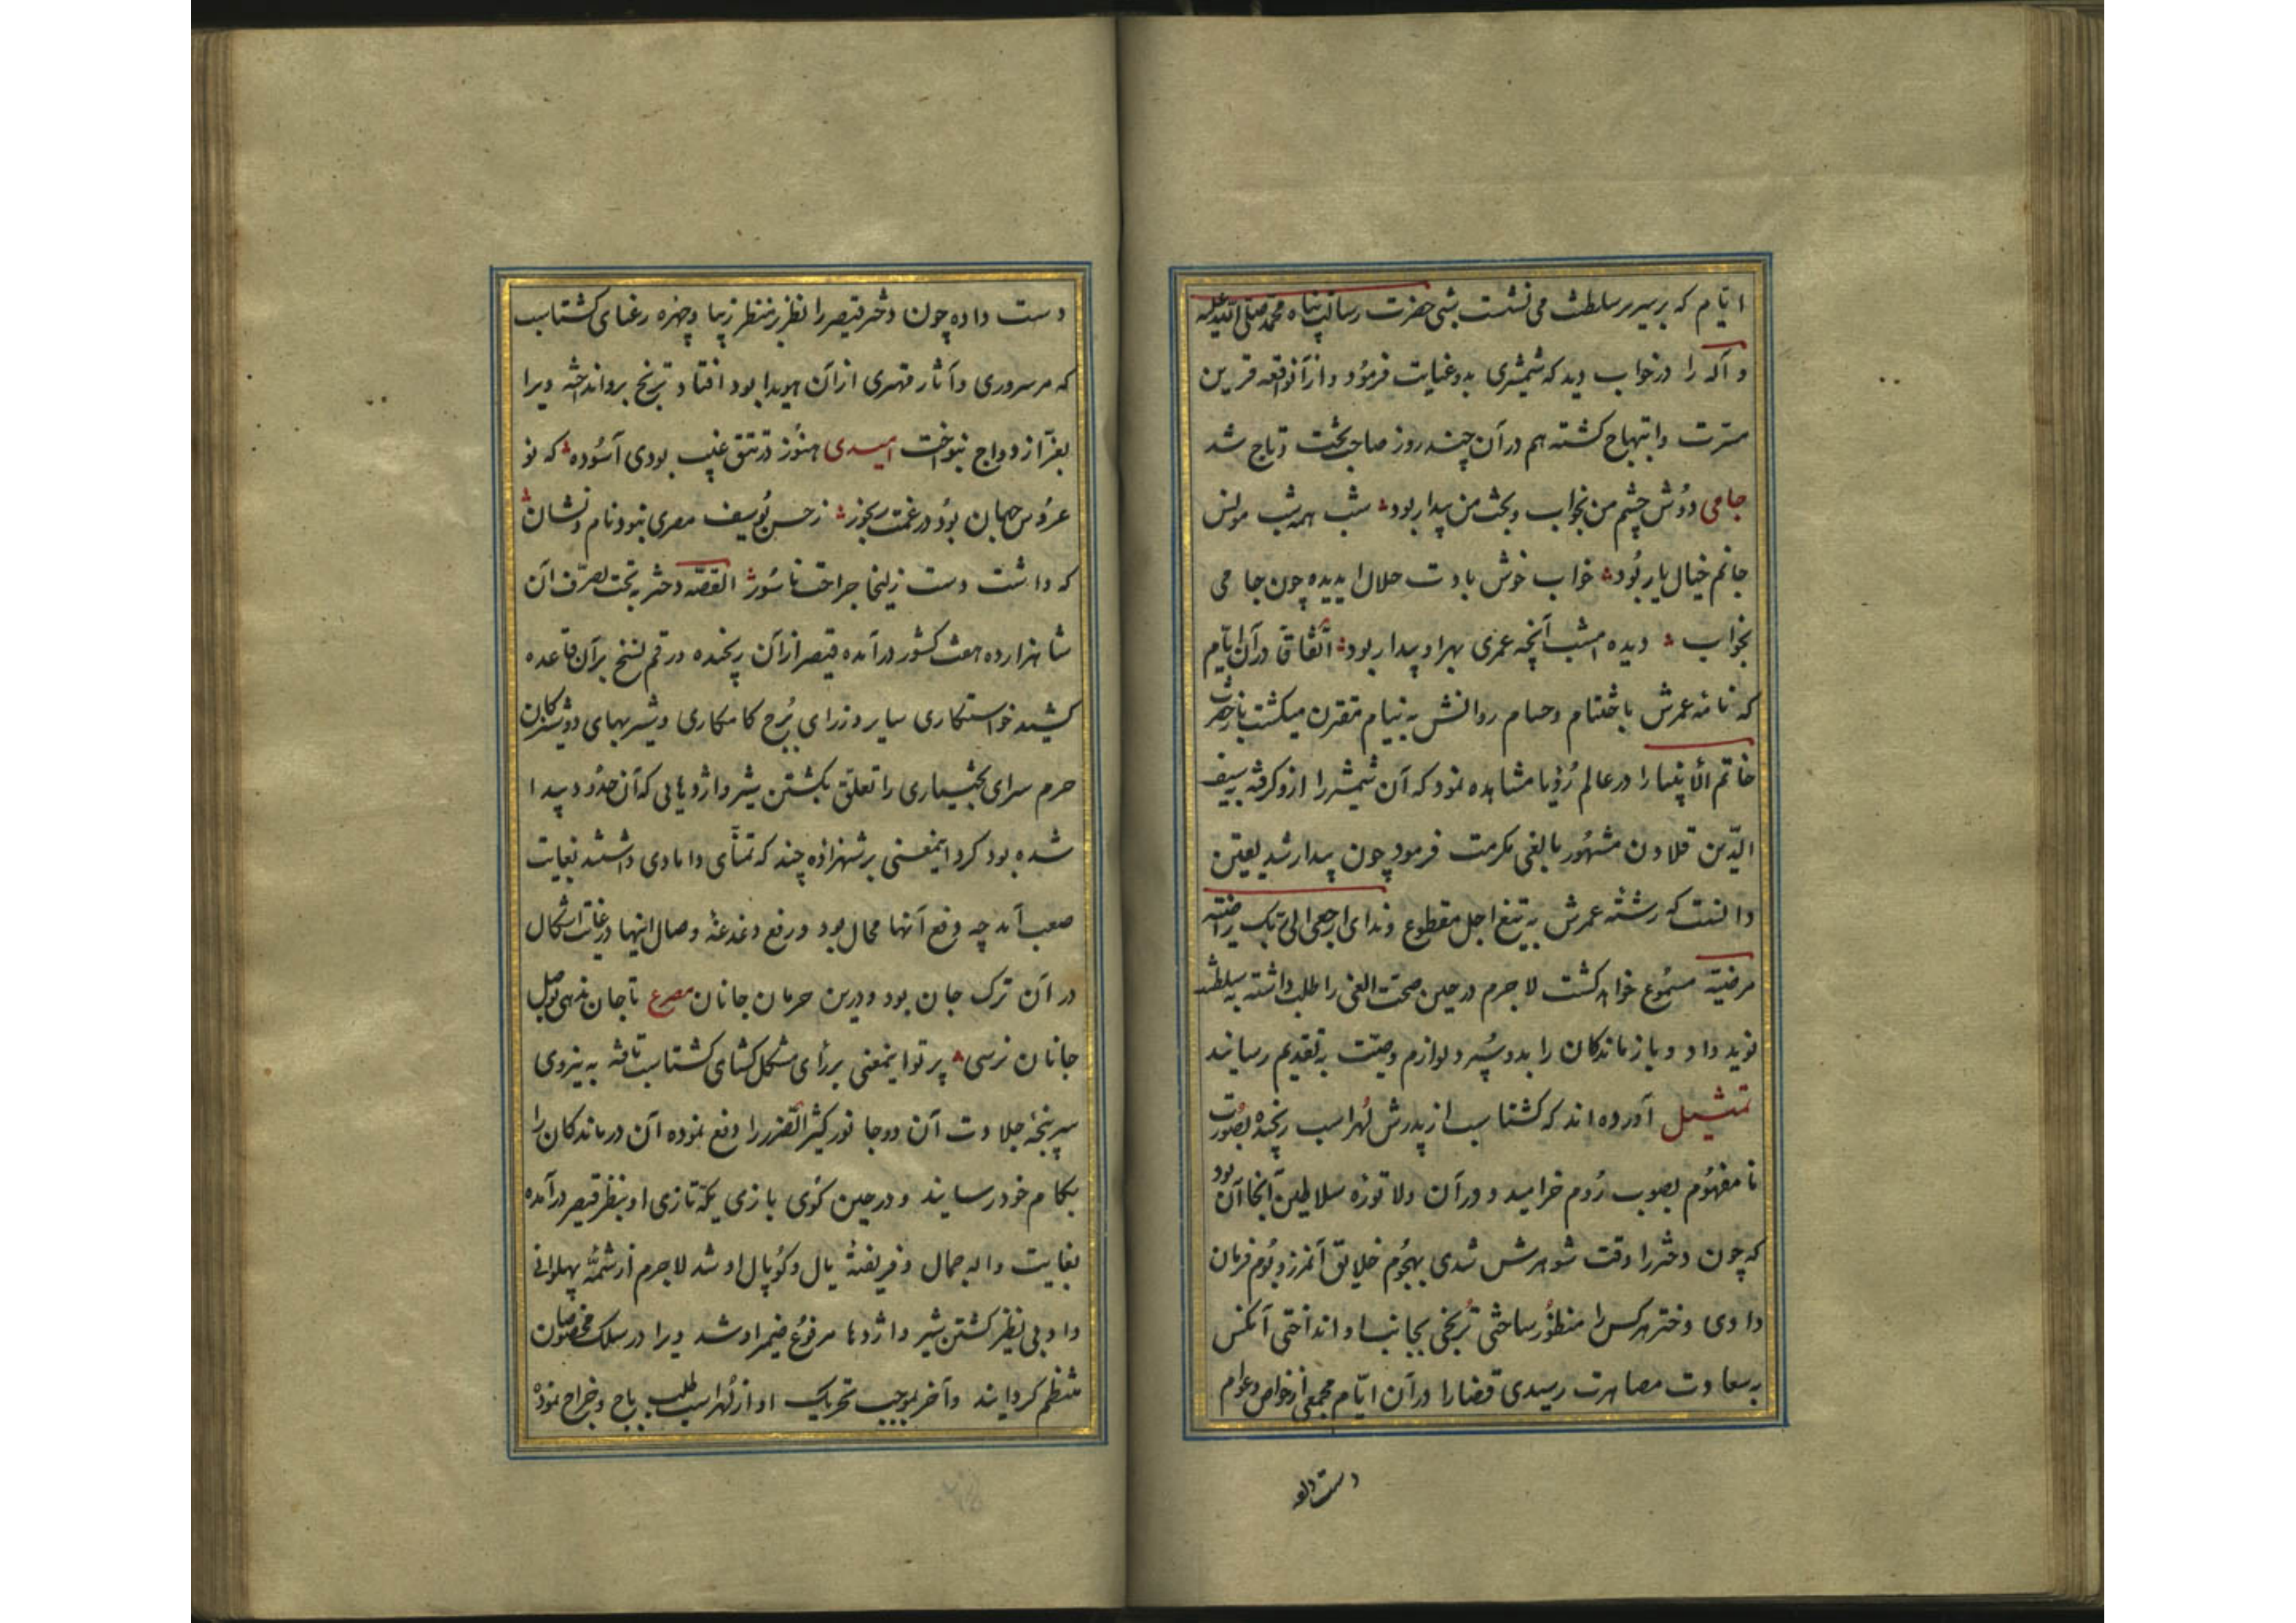 ایام که بر سریر سلطنت می نشست شبی حضرت رسالت پناه محمد صلی الله علیه
و آله را در خواب دید که شمشیری بدو عنایت فرمود و از آنواقعه قرین
مسرت و ابتهاج کشته هم در آن چند روز صاحب تخت و تاج شد
جامی دوش چشم من بخواب و بخت من بیدار بود شب همه شب مونس
جانم خیال یار بود خواب خوش بادت حلال ای دیده چون جامی
بخواب دیده امشب آنچه عمری بهر او بیدار بود اتفاقا در آن ایام
که نامه عمرش باختتام و حسام روانش به نیام مقترن میکشت باز حضرت
خاتم الانبیا را در عالم رؤیا مشاهده نمود که آن شمشیر را ازو کرفته بسیف
الدین قلاون مشهور بالفی مکرمت فرمود چون بیدار شد یقین
دانست که رشته عمرش به تیغ اجل مقطوع و ندای ارجعی الی ربک راضیة
مرضیة مسموع خواهد کشت لا جرم در حین صحت الفی را طلب داشته به سلطنت
نوید داد و بازماندکان را بدو سپرد و لوازم وصیت به تقدیم رسانید
تمثیل آورده اند که کشتاسب از پدرش لهراسب رنجیده بصورت
نامفهوم بصوب روم خرامید و در آن ولا توره سلاطین آنجا آن بود
که چون دختر را وقت شوهرش شدی بهجوم خلایق آنمرز و بوم فرمان
دادی و دختر هر کس را منظور ساختی ترنجی بجانب او انداختی آنکس
به سعادت مصاهرت رسیدی قضا را در آن ایام مجمعی از خواص و عوام
دست داده
دست داده چون دختر قیصر را نظر بر منظر زیبا و چهره رعنای کشتاسب
که مر سروری و آثار مهتری از آن هویدا بود افتاد ترنج برو انداخته ویرا
بعز ازدواج بنواخت امیدی هنوز در تتق غیب بودی آسوده که نو
عروس جهان بود در غمت رنجور ز حسن یوسف مصری نبود نام و نشان
که داشت دست زلیخا جراحت ناسور القصه دختر به تحت تصرف آن
شاهزاده هفت کشور در آمده قیصر از آن رنجیده رقم نسخ بر آن قاعده
کشید خواستکاری سایر و زرای برج کامکاری و شیربهای دوشیزکان
حرم سرای بختیاری را تعلق بکشتن شیر و اژدهایی که آن حدود پیدا
شده بود کرد اینمعنی بر شهزاده چند که تمنای دامادی داشتند بغایت
صعب آمد چه دفع آنها محال بود و رفع دغدغه وصال اینها در غایت اشکال
در آن ترک جان بود و درین حرمان جانان مصرع تا جان ندهی بوصل
جانان نرسی پرتو اینمعنی بر رأی مشکل کشای کشتاسب تافته به نیروی
سرپنجه جلادت آن دو جانور کثیر الضرر را دفع نموده آن درماندکان را
بکام خود رسانید و در حین کوی بازی یکه تازی او بنظر قیصر در آمده
بغایت واله جمال و فریفته یال و کوپال او شد لا جرم از شمه پهلوانی
و ادب بی نظیر کشتن شیر و اژدها مرفوع ضمیر او شد ویرا در سلک مخصوصان
منتظم کردانید و آخر بموجب تحریک او از لهراسب طلب باج و خراج نموده